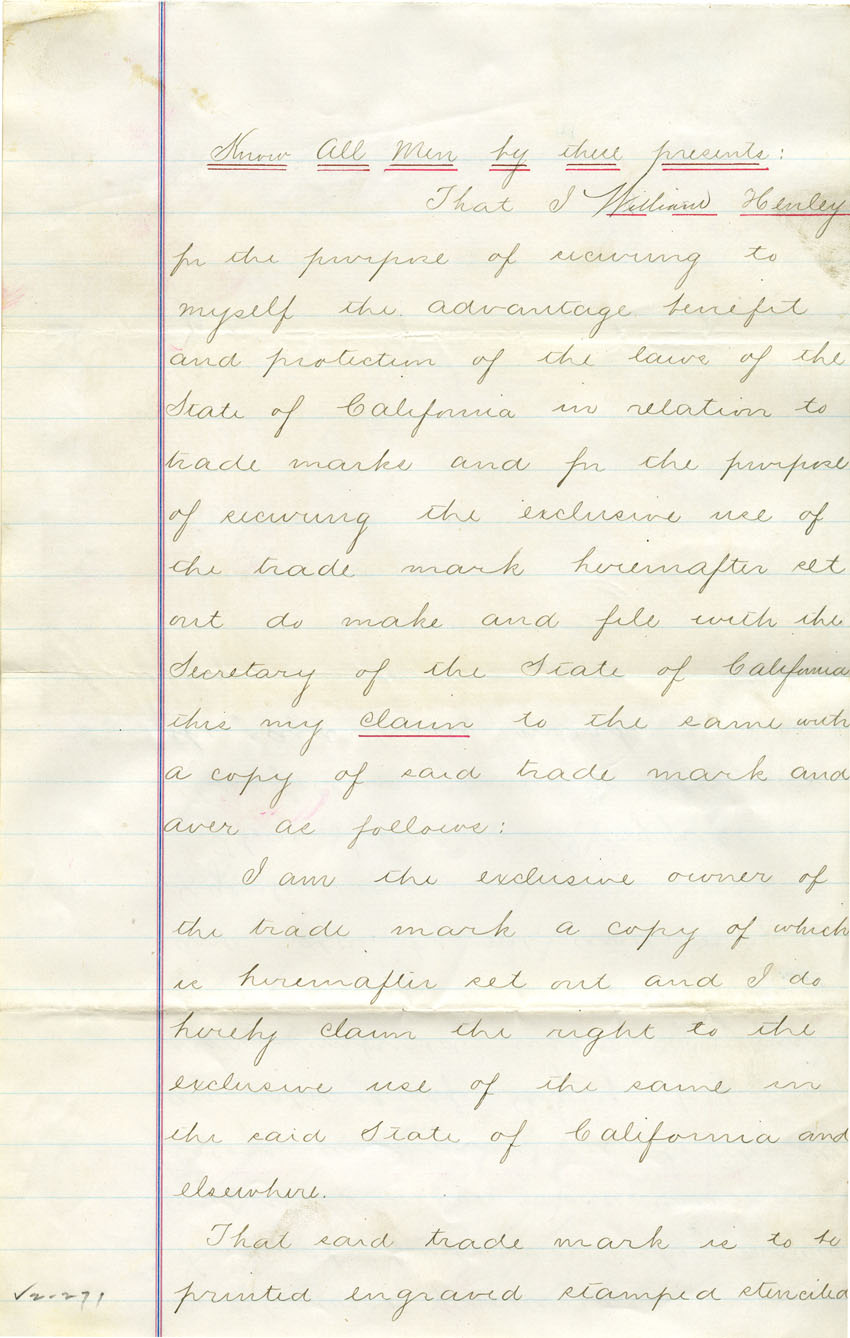 Know All Men by these presents:
That I William Henley
for the purpose of securing to
myself the advantage benefit
and protection of the laws of the
State of California in relation to
trade marks and for the purpose
of securing the exclusive use of
the trade mark hereinafter set
out do make and file with the
Secretary of the State of California
this my claim to the same with
a copy of said trade mark and
aver as follows:
I am the exclusive owner of
the trade mark a copy of which
is hereinafter set out and I do
hereby claim the right to the
exclusive use of the same in
the said State of California and
elsewhere.
That said trade mark is to be
printed engraved stamped stenciled
√2-271